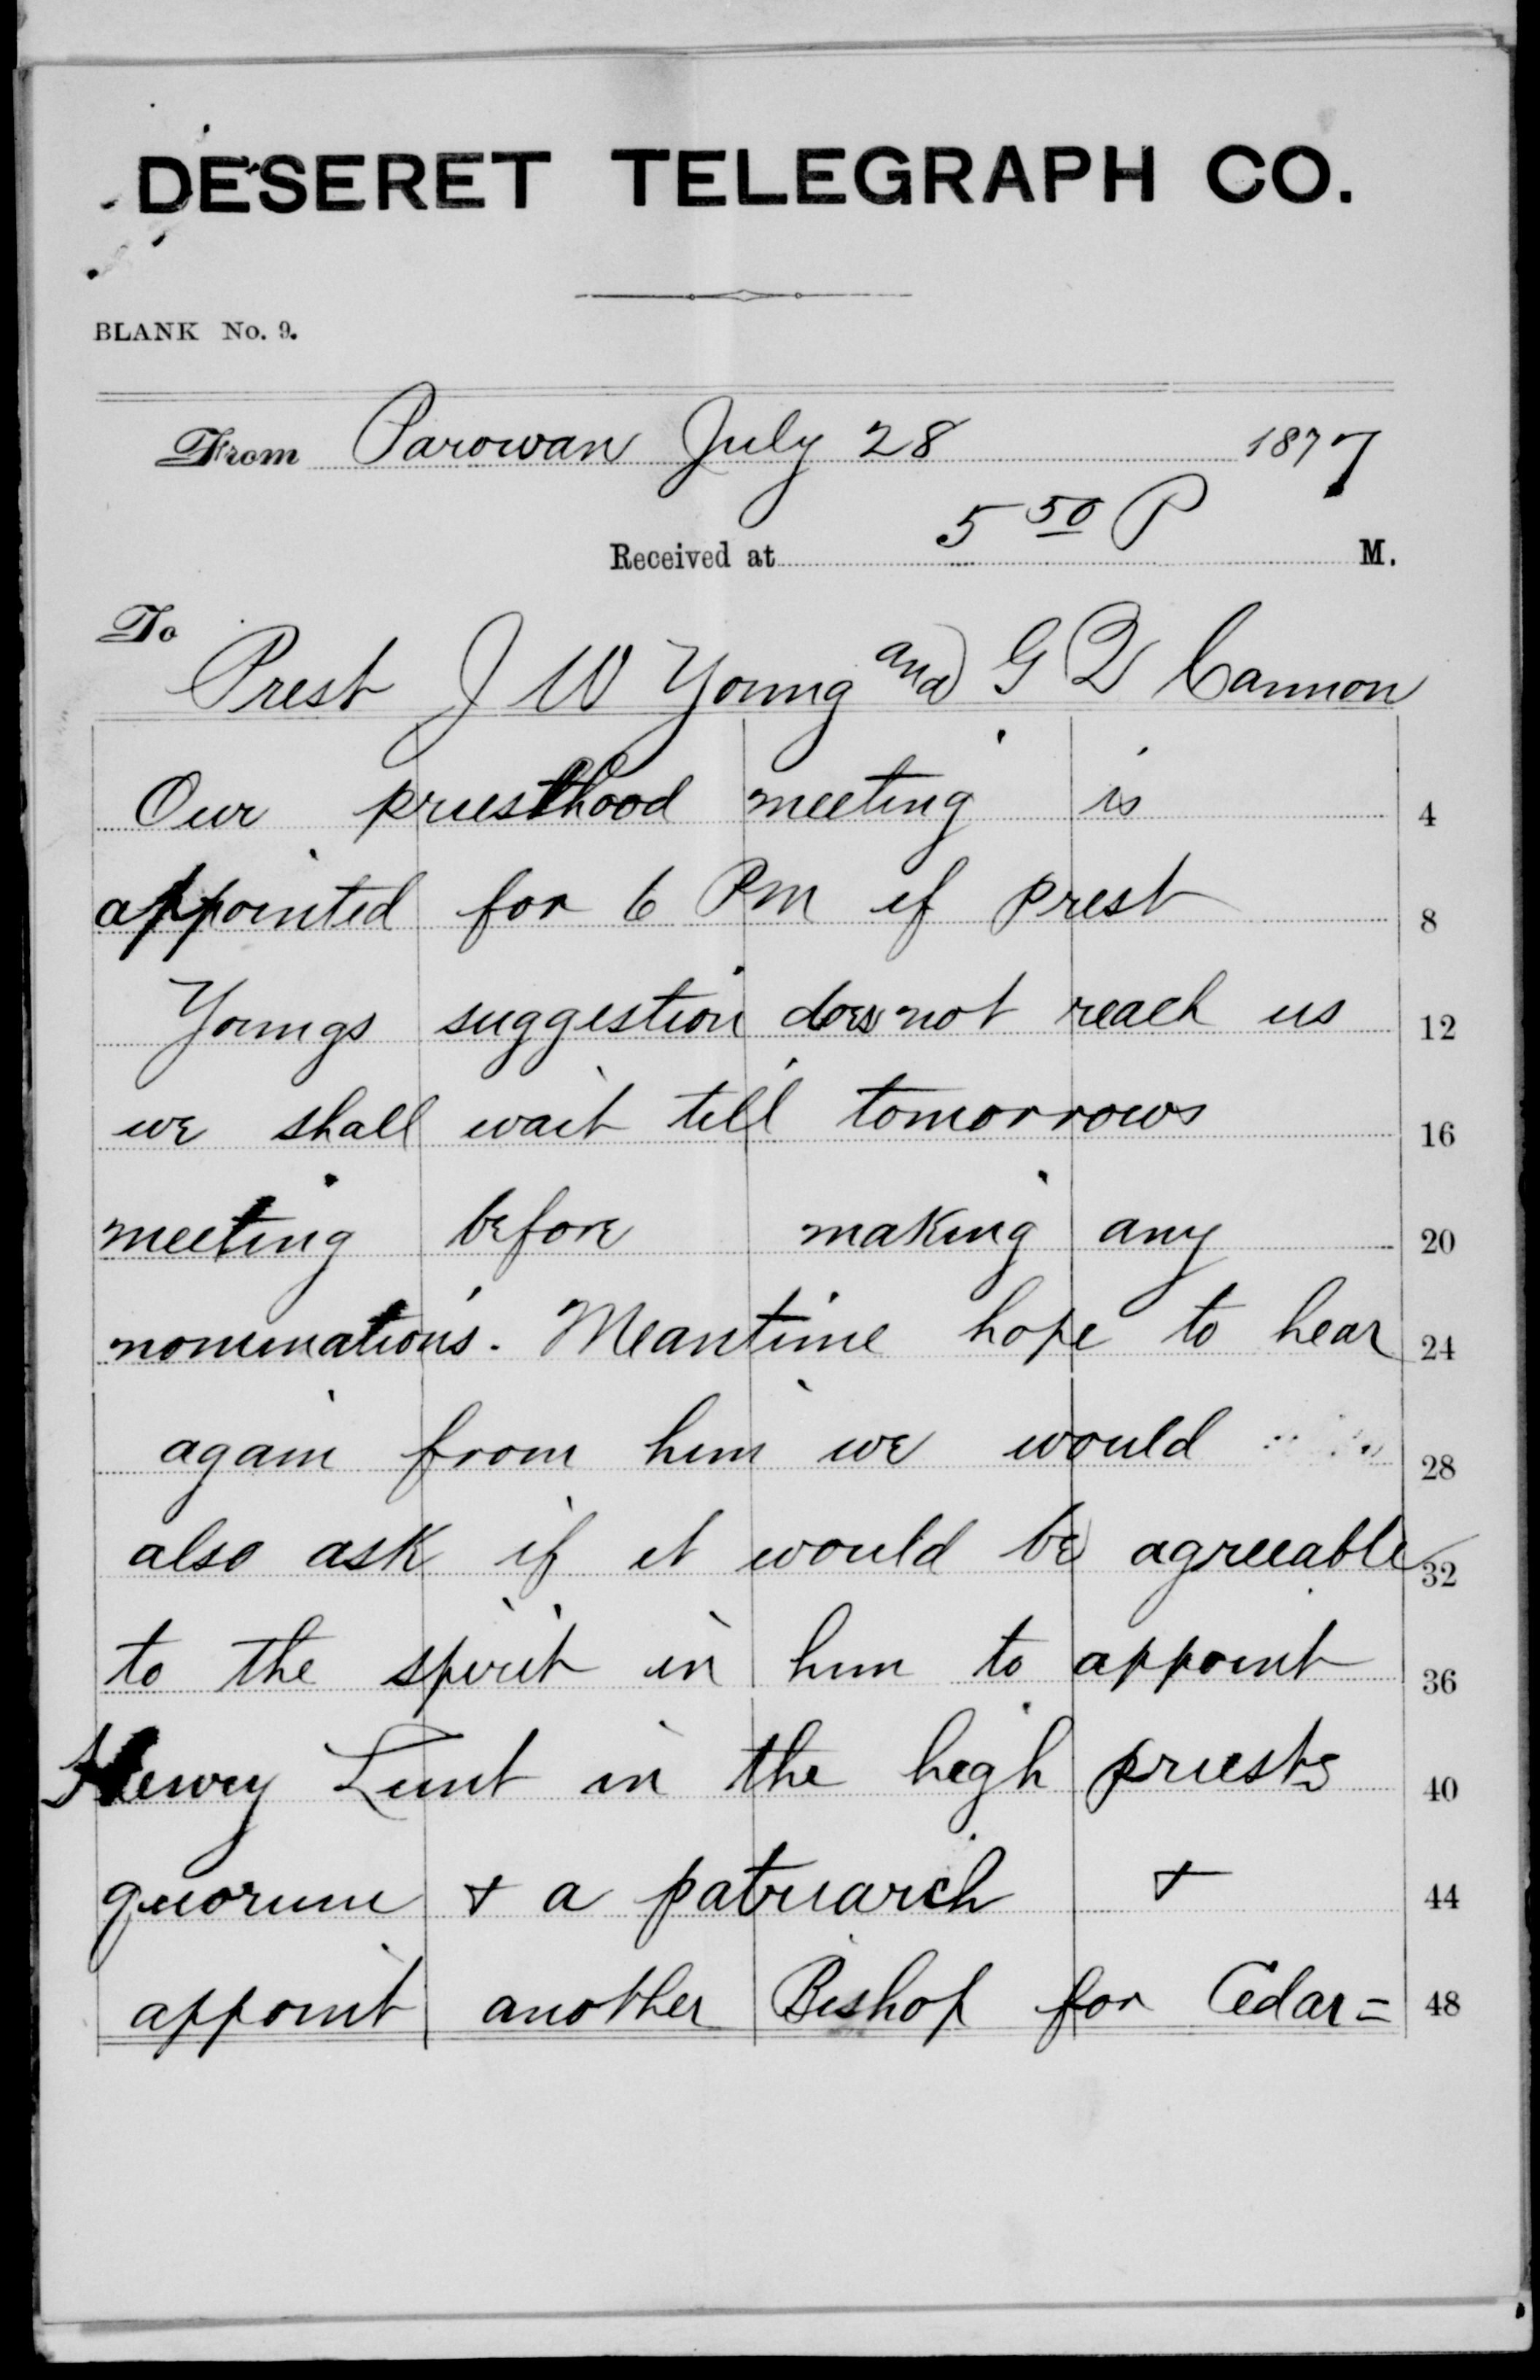 DESERET TELEGRAPH CO.
BLANK No. 9.
From Parowan July 28 1877
Received at 5 50 P M.
To
Prest J W Young and G Q Cannon
Our priesthood meeting is 4
appointed for 6 PM if prest 8
Youngs suggestion does not reach us 12
we shall wait till tomorrows 16
meeting before making any 20
nominations. Meantime hope to hear 24
again from him we would 28
also ask if it would be agreeable 32
to the spirit in him to appoint 36
Henry Lunt in the high priests 40
quorum & a patriarch & 44
appoint another Bishop for Cedar= 48